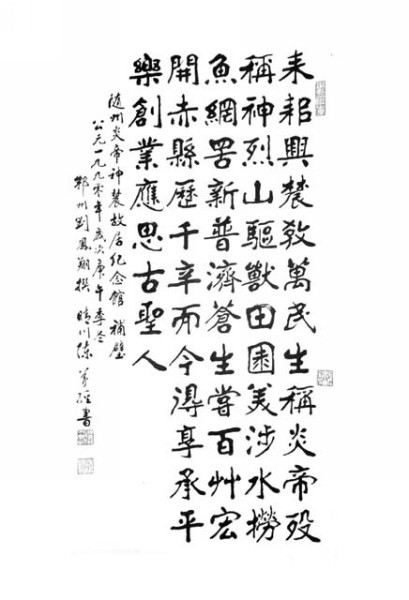 耒耜興農教萬民生稱炎帝歿
稱神烈山驅獸田園美涉水撈
魚網罟新普濟蒼生嘗百艸宏
開赤縣歷千辛而今得享承平
樂創業應思古聖人
隨州炎帝神農故居紀念館 補壁
公元一九九零年歲次庚午季冬
鄂州劉鳳翔撰 晴川陳義經書